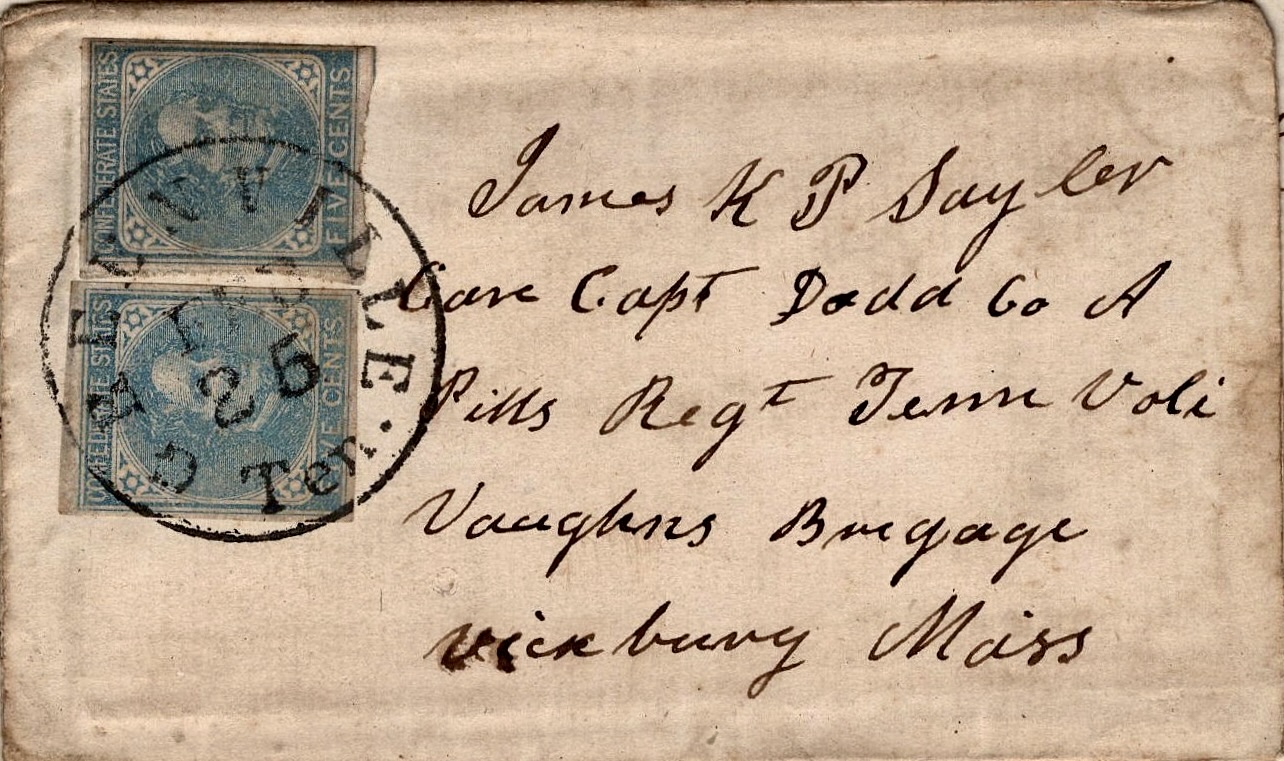 CONFEDERATE STATES
FIVE CENTS
CONFEDERATE STATES
FIVE CENTS
GREENVILLE
25
Ten.
James K P Sayler
Care Capt Dodd Co A
Pitts Regt Tenn Voli
Vaughns Bregage
vicksburg Miss